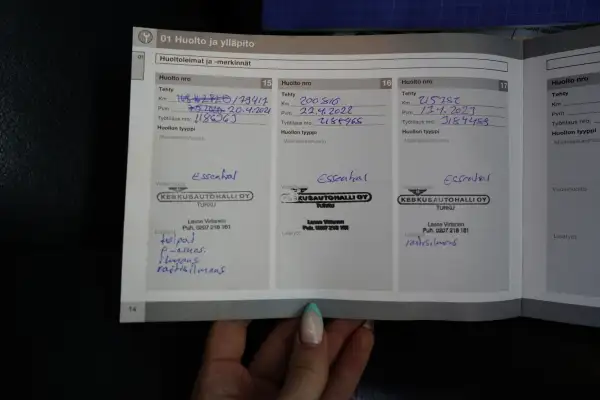 01 Huolto ja ylläpito
01
Huoltoleimat ja -merkinnät
Huolto nro 15
Tehty
Km 179417
Pvm 20.4.2021
Työtilaus nro
Huollon tyyppi
essential
KESKUSAUTOHALLI OY
TURKU
Lasse Virtanen
Puh. 0207 218 181
raitisilmans
Huolto nro 16
Tehty
Km
Pvm 22.4.2022
Työtilaus nro
Huollon tyyppi
essential
KESKUSAUTOHALLI OY
TURKU
Lasse Virtanen
Puh. 0207 218 181
Huolto nro 17
Tehty
Km 215752
Pvm
Työtilaus nro 3184489
Huollon tyyppi
essential
KESKUSAUTOHALLI OY
TURKU
Lasse Virtanen
Puh. 0207 218 181
raitisilmans
Huolto nro
Tehty
Km
Pvm
Työtilaus nro
Huollon tyyppi
14